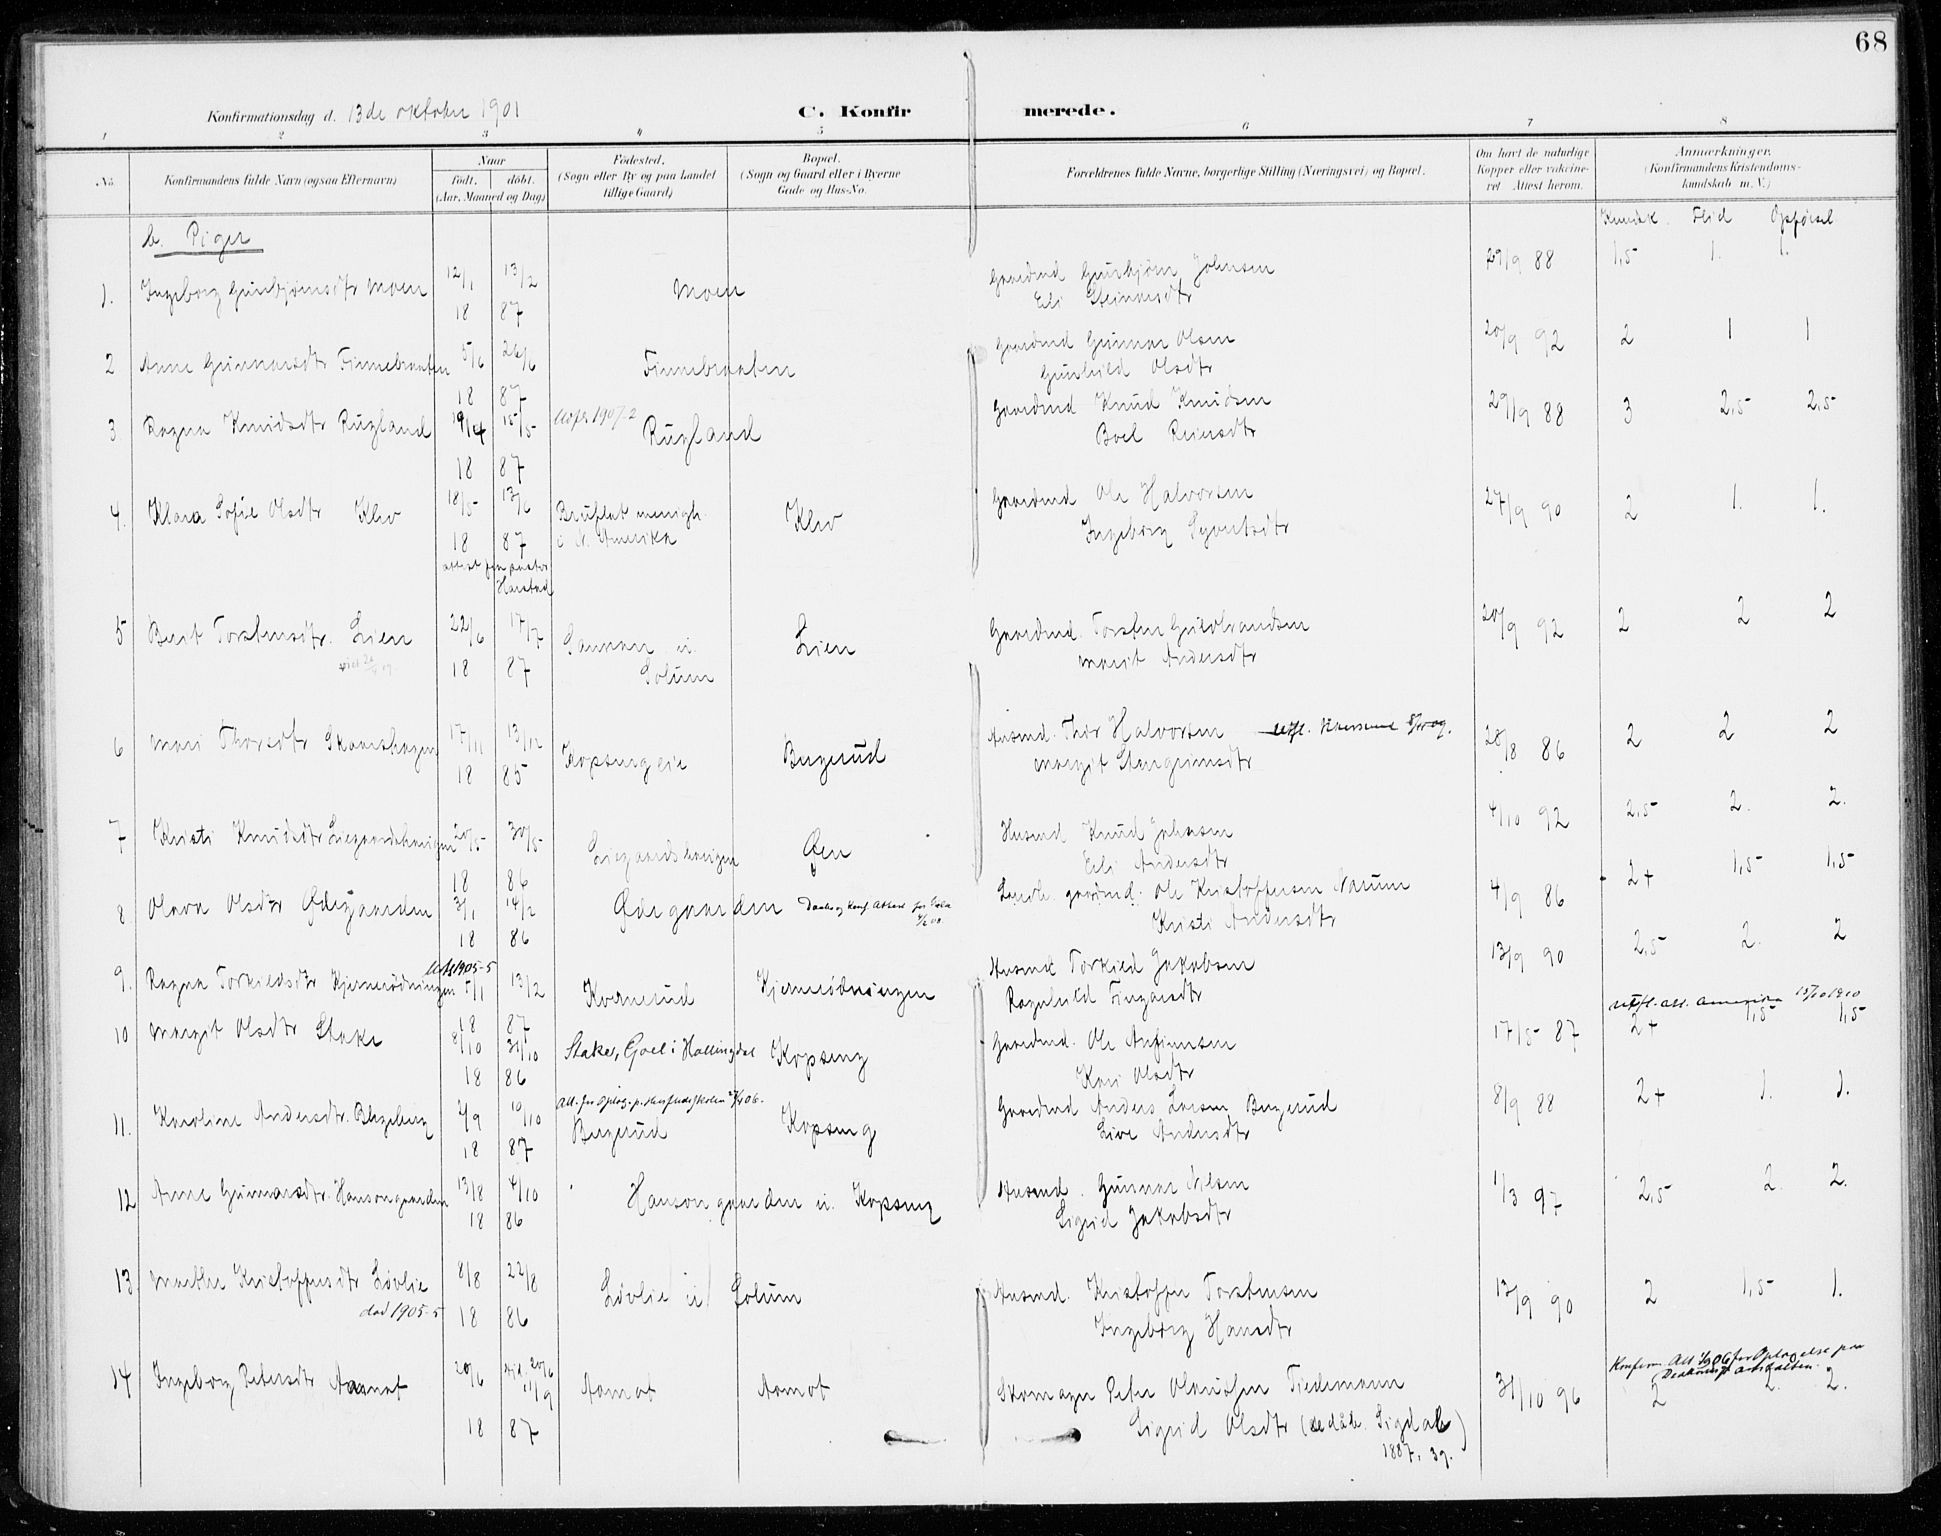 68
Konfirmationsdag d. 13de oktober 1901
C. Konfirmerede.
1 2 3 4 5 6 7 8
No.
Konfirmandens fulde Navn (ogsaa Efternavn)
Naar
født. døbt.
(Aar, Maaned og Dag)
Fødested.
(Sogn eller By og paa Landet
tillige Gaard)
Bopæl.
(Sogn og Gaard eller i Byerne
Gade og Hus-No.
Forældrenes fulde Navne, borgerlige Stilling (Næringsvei) og Bopæl.
Om havt de naturlige
Kopper eller vakcine-
ret Attest herom.
Anmærkninger.
(Konfirmandens Kristendoms-
kundskab m. V.)
Kundsk. Flid Opførsel
b. Piger
1. Ingeborg Gunbjørnsdtr Moen 12/1 13/2 Moen Gaardmd Gunbjørn Johnsen 29/9 88 1,5 1. 1.
18 87 Eli Steinarsdtr
2 Anne Gunnarsdtr Finnebraaten 5/6 26/6 Finnebraaten Gaardmd Gunnar Olsen 20/9 92 2 1 1
18 87 Gunhild Olsdtr
3 Ragna Knudsdtr Rugland 19/4 15/5 1907-2 Rugland Gaardmd Knud Knudsen 29/9 88 3 2,5 2,5
18 87 Boel Reiersdtr
4. Klara Sofie Olsdtr Kliv 18/5 13/6 Bruflat menigh. Kliv Gaardmd Ole Halvorsen 27/9 90 2 1. 1.
18 87 i N. Amerika Ingeborg Syvertsdtr
attest fra pastor
Harstad
5 Berit Torstensdtr. Lien 22/6 17/7 Gaarden u. Lien Gaardmd. Torsten Guldbrandsen 20/9 92 2 2 2
18 87 Solum Marit Andersdtr
6 Mari Thorsdtr Skarshagen 17/11 13/12 Kopsengeie Bugerud Husmd. Thor Halvorsen 28/8 86 2 2 2
18 85 Margit Stengrimsdtr
7 Kristi Knudsdtr Liegaardshaugen 20/5 30/5 Liegaardshaugen Øen Husmd Knud Johnsen 4/10 92 2,5 2. 2.
18 86 Eli Andersdtr
8 Olava Olsdtr Ødegaarden 3/1 14/2 Ødegaarden Gaardmd. Ole Kristoffersen Narum 4/9 86 2+ 1,5 1,5
18 86 Kristi Andersdtr
9. Ragna Torkildsdtr Kjernesødningen 1905-5 5/1 13/2 Kvernerud Kjernesødningen Husmd Torkild Jakobsen 13/9 90 2,5 2. 2
18 87 Ragnhild Fingarsdtr
utfl. att. Amerika 15/10 1910
10 Margit Olsdtr Stake 8/10 31/10 Stake, Goel i Hallingdal Kopseng Gaardmd. Ole Anfinnsen 17/5 87 2+ 1,5 1,5
18 86 Kari Olsdtr
11. Karoline Andersdtr. 4/9 10/10 Bugerud Kopseng Gaardmd Anders Larsen Bugerud 8/9 88 2+ 1. 1.
18 87 Live Andersdtr
12 Anne Gunnarsdtr. Hansongaarden 13/8 4/10 Hansongaarden u. Kopseng Husmd. Gunnar Nilsen 1/3 97 2,5 2. 2.
18 86 Sigrid Jakobsdtr
13. Marthe Kristoffersdtr Løvlie 8/8 22/8 Løvlie u/ Solum Husmd. Kristoffer Torstensen 13/9 90 2 1,5 1.
død 1905-5 18 86 Ingeborg Hansdtr
Konfirm. Att 06 for Optagelse paa
Diakonisse anstalten.
14 Ingeborg Petersdtr Aamot 20/6 11/9 Aamot Aamot Skomager Peter Olaussen Tiedemann 31/10 96 2 2. 2.
18 87 Sigrid Olsdtr (se døb. Sigdal
1887, 39.)